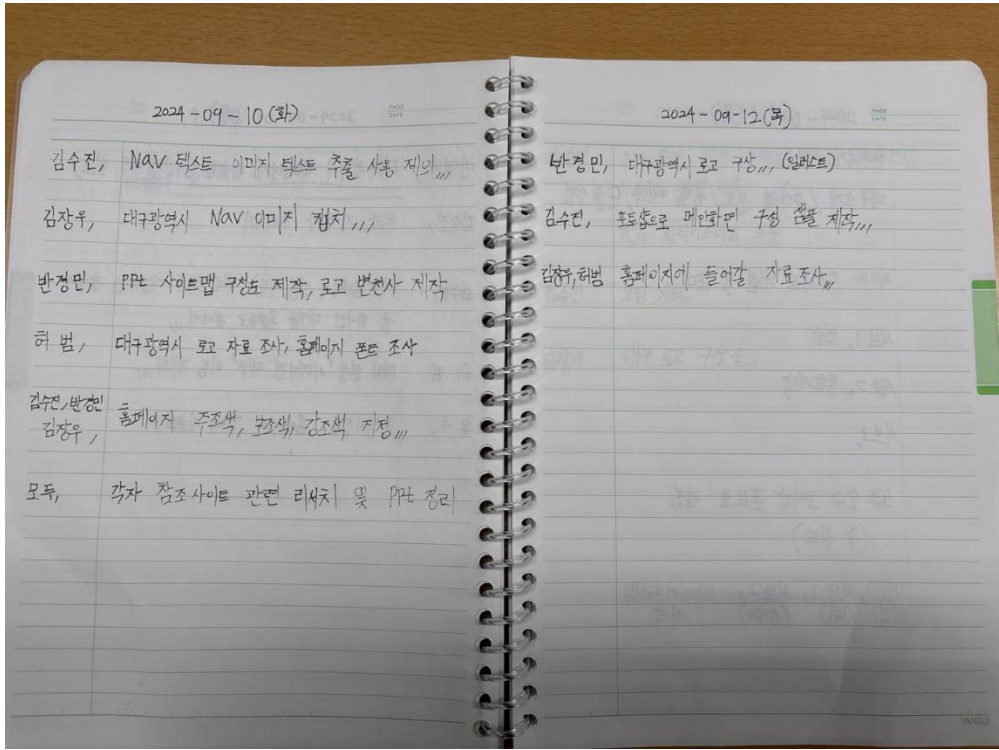 2024-09-10(화)
PAGE
DATE
김수진, Nav 텍스트 이미지 텍스트 추출 사용 제의,,,
김장우, 대구광역시 Nav 이미지 캡처,,,,
반경민, PPt 사이트맵 구성도 제작, 로고 변천사 제작
허 범, 대구광역시 로고 자료 조사, 홈페이지 폰트 조사
김수진, 반경민
김장우, 홈페이지 주조색, 보조색, 강조색 지정,,,
모두, 각자 참조사이트 관련 리서치 및 PPt 정리
2024-09-12(목)
PAGE
DATE
반경민, 대구광역시 로고 구상,,, (일러스트)
김수진, 포토샵으로 메인화면 구성 샘플 제작,,,
김장우, 허범 홈페이지에 들어갈 자료조사,,,
YANGJI